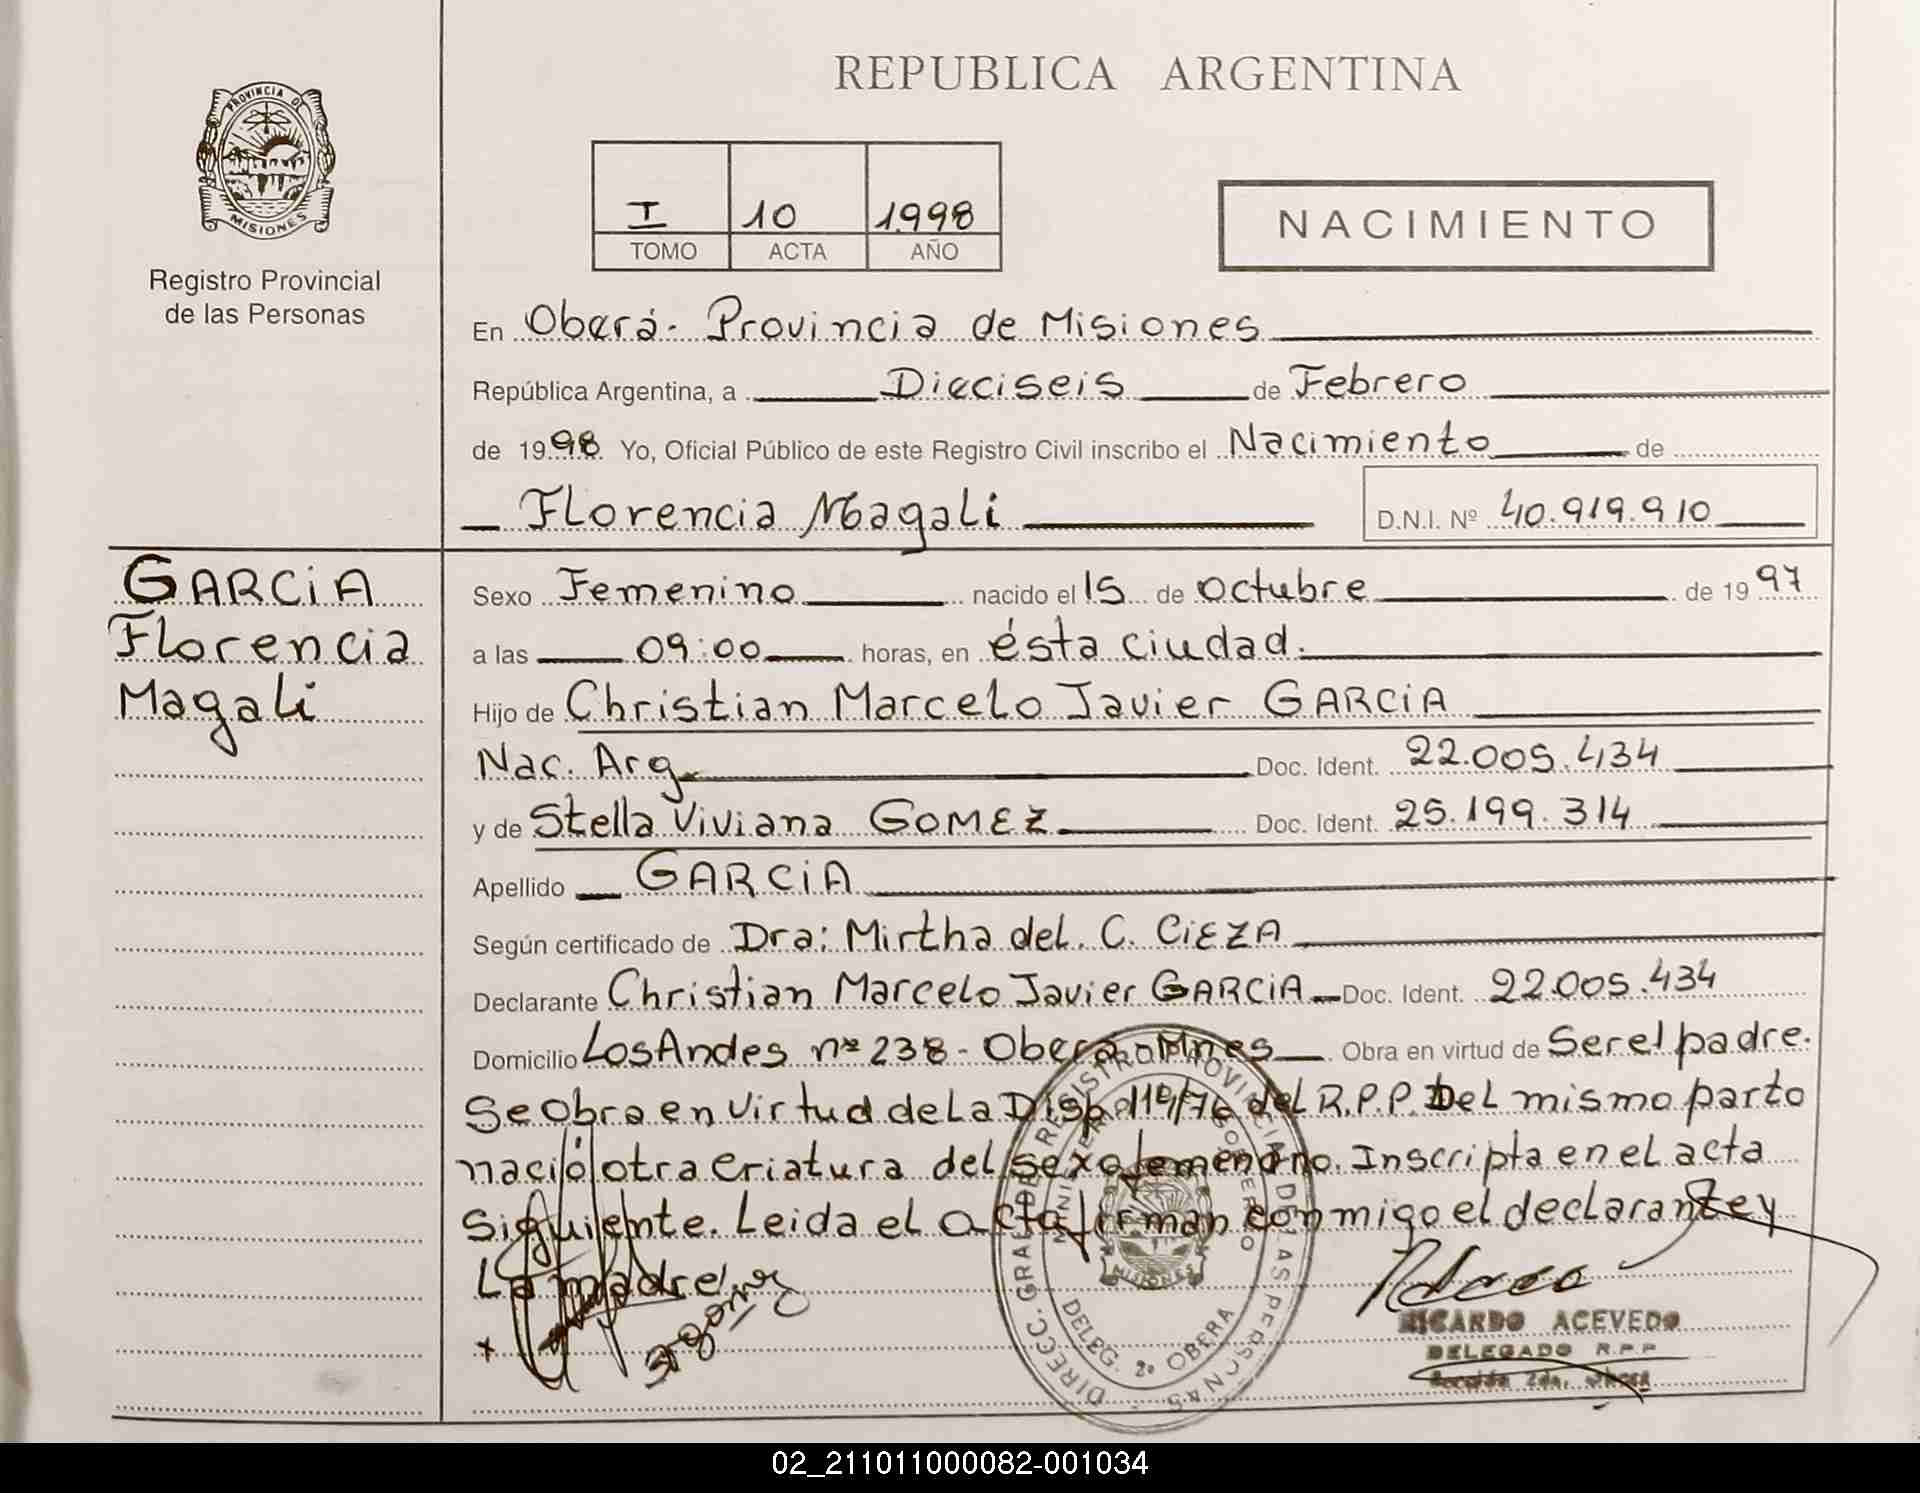 REPUBLICA ARGENTINA
PROVINCIA DE
MISIONES
Registro Provincial
de las Personas
I 10 1.998
TOMO ACTA AÑO
NACIMIENTO
En Oberá - Provincia de Misiones
República Argentina, a Dieciseis de Febrero
de 1998 Yo, Oficial Público de este Registro Civil inscribo el Nacimiento de
Florencia Magali D.N.I. Nº 40.919.910
GARCiA
Florencia
Magali
Sexo Femenino nacido el 15 de octubre de 1997
a las 09:00 horas, en ésta ciudad.
Hijo de Christian Marcelo Javier GARCiA
Nac. Arg. Doc. Ident. 22.005.434
y de Stella Viviana GOMEZ Doc. Ident. 25.199.314
Apellido GARCiA
Según certificado de Dra: Mirtha del. C. CiEZA
Declarante Christian Marcelo Javier GARCiA Doc. Ident. 22.005.434
Domicilio Los Andes nº 238 - Oberá - Mnes Obra en virtud de Ser el padre.
Se obra en virtud de La Disp. 119/76 del R.P.P. Del mismo parto
nació otra criatura del sexo femenino. Inscripta en el acta
Siguiente. Leida el acta firman conmigo el declarante y
La madre.
DIRECC. GRAL. DEL REGISTRO PROVINCIAL DE LAS PERSONAS
MINISTERIO GOBIERNO
MISIONES
DELEG. 2º OBERA
RICARDO ACEVEDO
DELEGADO R.P.P
Sección 2da. Oberá
02_211011000082-001034